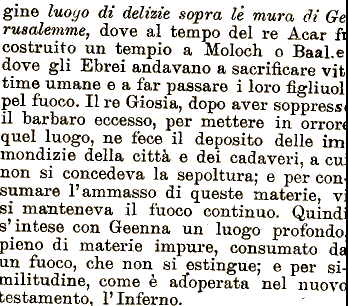 gine luogo di delizie sopra le mura di Ge
rusalemme, dove al tempo del re Acar fu
costruito un tempio a Moloch o Baal e
dove gli Ebrei andavano a sacrificare vit
time umane e a far passare i loro figliuol
pel fuoco. Il re Giosia, dopo aver soppress
il barbaro eccesso, per mettere in orrore
quel luogo, ne fece il deposito delle im
mondizie della città e dei cadaveri, a cu
non si concedeva la sepoltura; e per con
sumare l'ammasso di queste materie, v
si manteneva il fuoco continuo. Quindi
s'intese con Geenna un luogo profondo
pieno di materie impure, consumato da
un fuoco, che non si estingue; e per si
militudine, come è adoperata nel nuovo
testamento, l'Inferno.